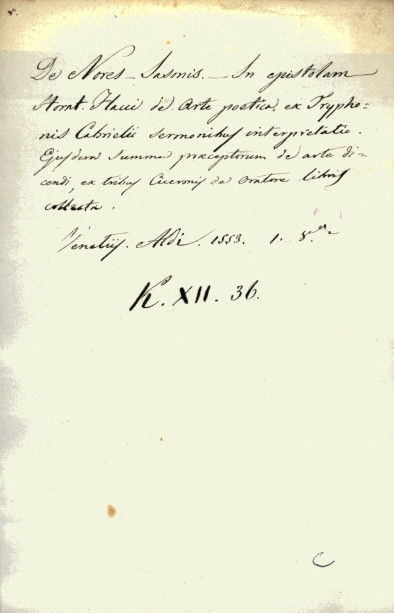 De Nores - Jasonis. - In epistolam
Horat. Flacci de Arte poetica, ex Trypho=
nis Cabrielii sermonibus interpretatio.
Ejusdem Summa præceptorum de arte di=
cendi, ex tribus Ciceronis de oratore libris
collecta.
Venetiis. Aldi. 1553. 1. 8.
K. XII. 36.
C